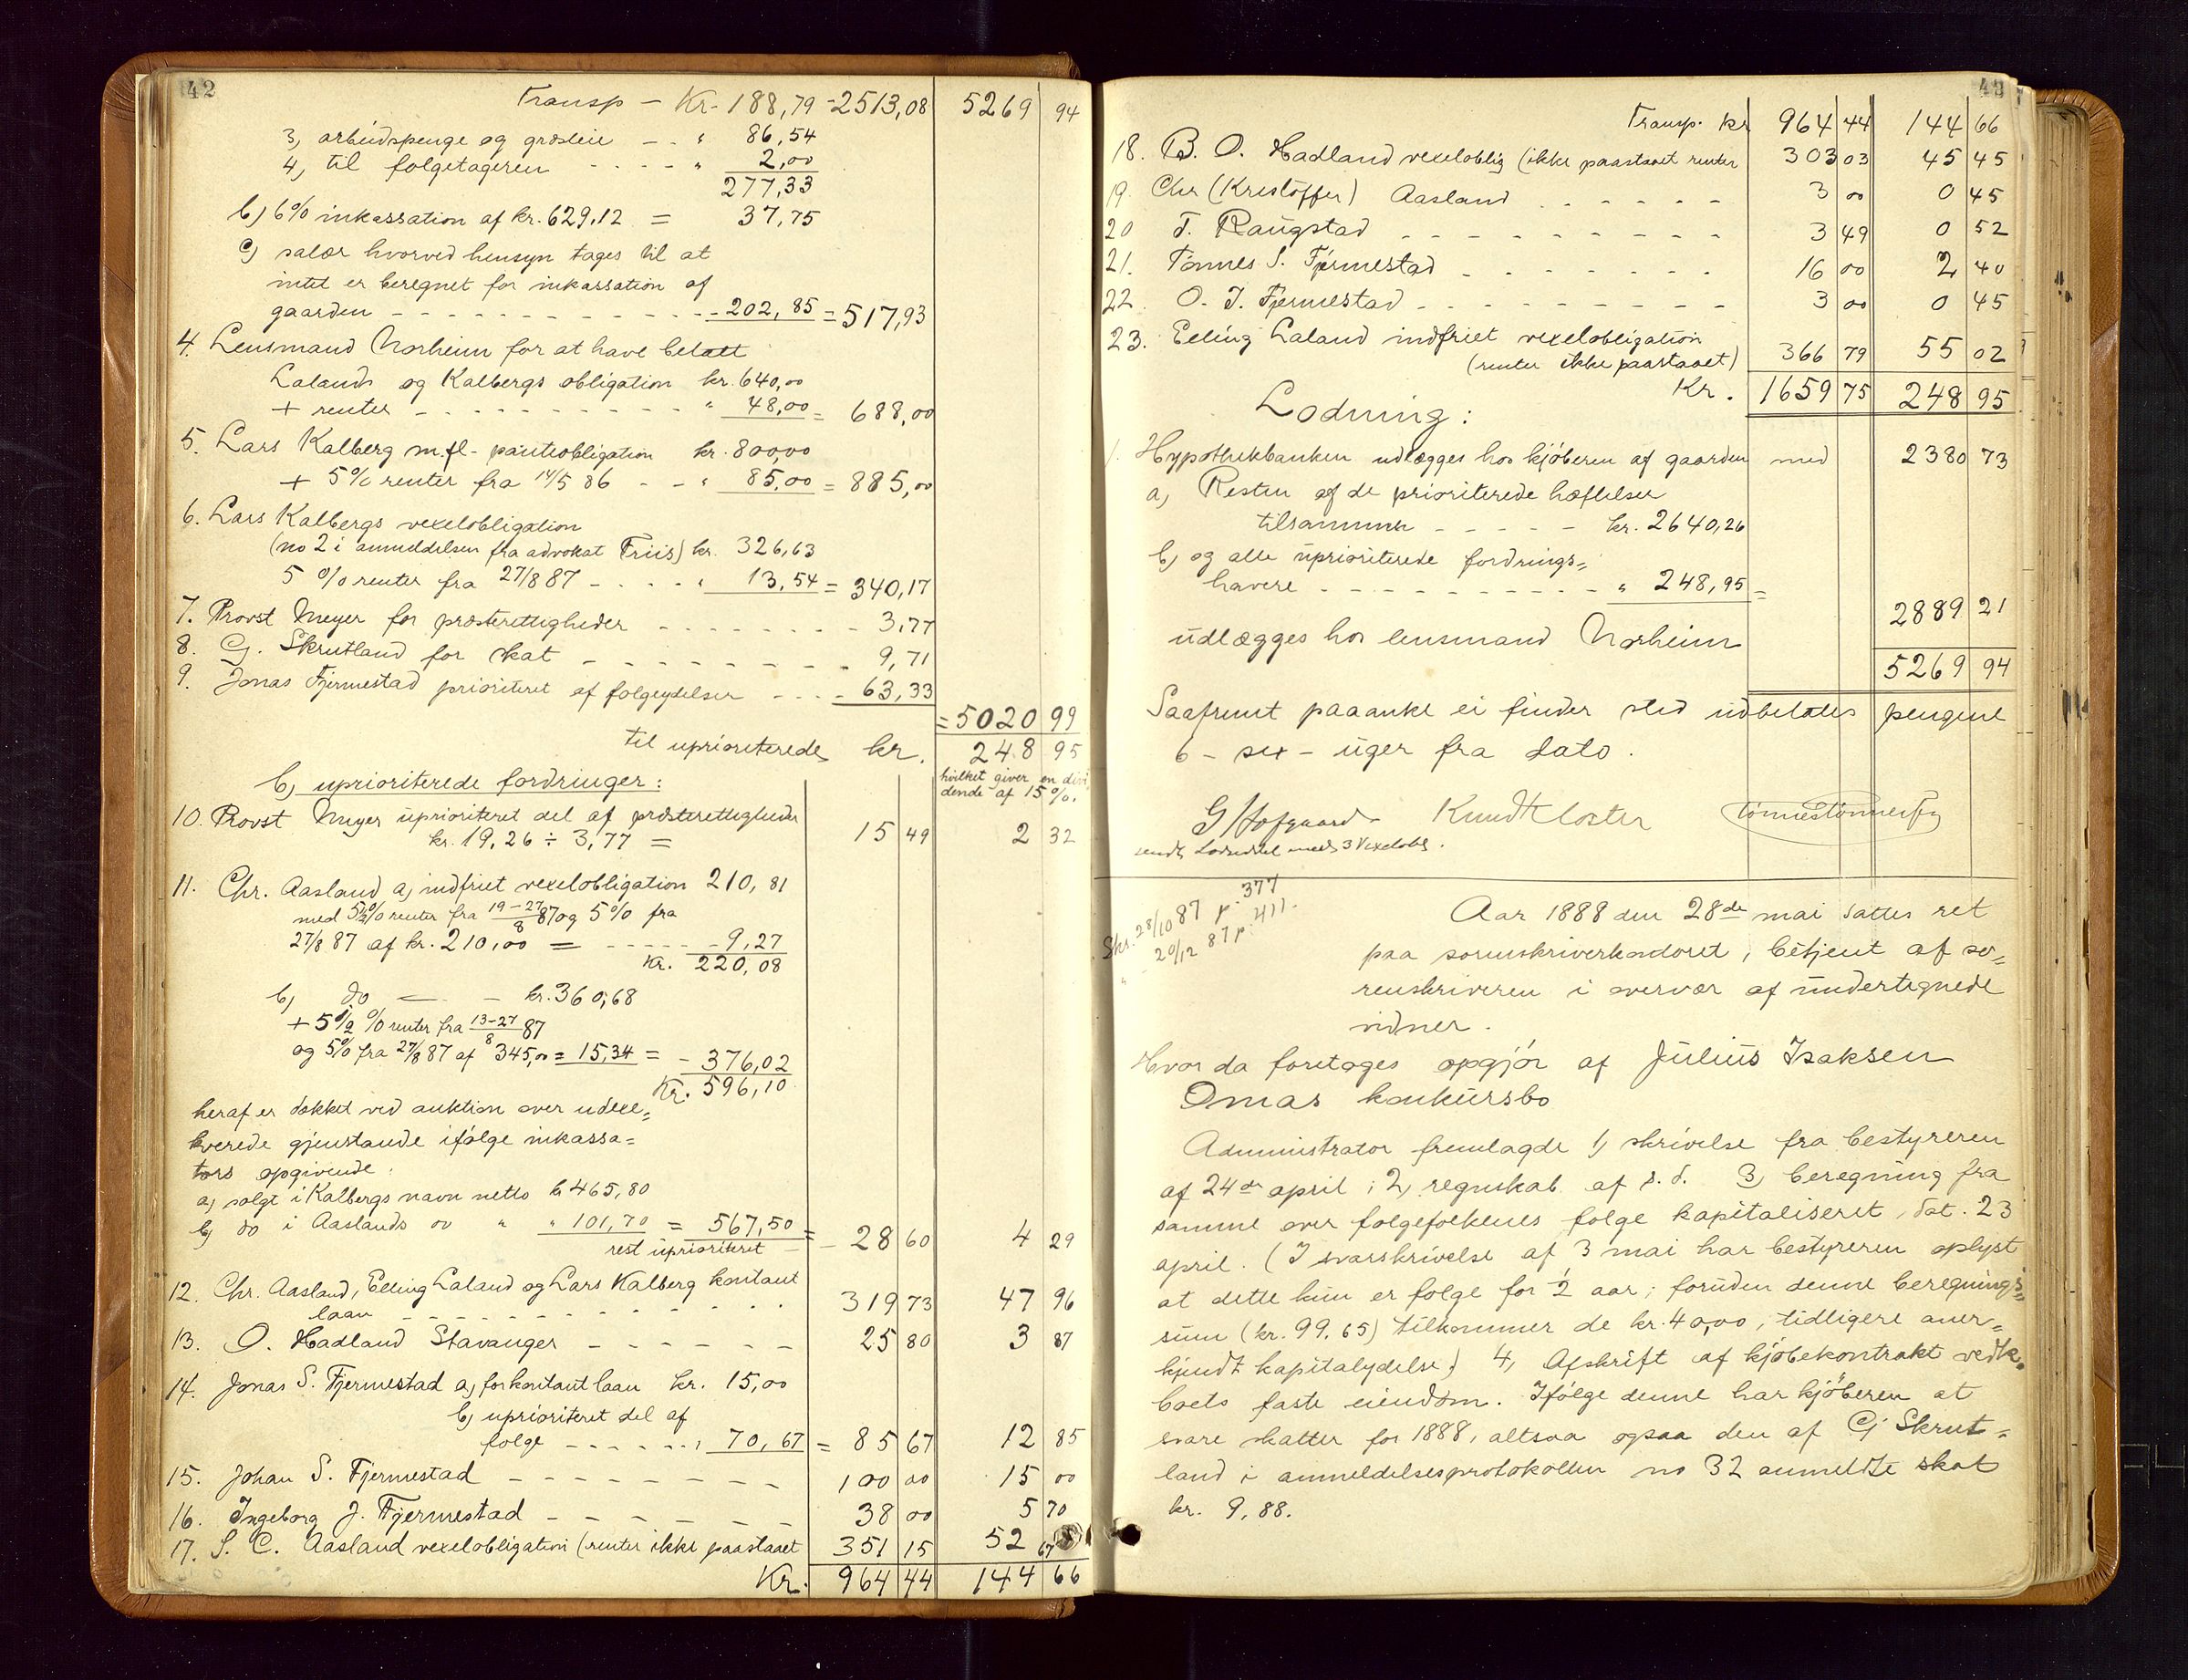 42
Transp - Kr. 188,79 - 2513,08 5269 94
3, arbeidspenge og græsleie - - " 86,54
4, til følgetageren - - - - " 2,00
277,33
b) 6% inkassation af kr. 629,12 = 37,75
c) salær hvorved hensyn tages til at
intet er beregnet for inkassation af
gaarden - - - - - - - - - - 202,85 = 517,93
4. Lensmand Norheim for at have betalt
Lalands og Kalbergs obligation kr. 640,00
+ renter - - - - - - - - - " 48,00 = 688,00
5. Lars Kalberg m.fl. panteobligation kr. 800,00
+ 5% renter fra 14/5 86 - - " 85,00 = 885,00
6. Lars Kalbergs vexelobligation
(no 2 i anmeldelsen fra advokat Friis) kr. 326,63
5 % renter fra 27/8 87 - - - - " 13,54 = 340,17
7. Provst Meyer for præsterettigheder - - - - - - - 3,77
8. G. Skrutland for skat - - - - - - - - - 9,71
9. Jonas Fjermestad prioriteret af følgeydelser - - - - 63,33
= 5020 99
til uprioriterede kr. 248 95
hvilket giver en divi
dende af 15 %.
b, uprioriterede fordringer:
10. Provst Meyer uprioriteret del af præsterettigheder
kr. 19,26 ÷ 3,77 = 15 49 2 32
11. Chr. Aasland a, indfriet vexelobligation 210,81
med 5½% renter fra 19-27/8 87 og 5% fra
27/8 87 af kr. 210,00 = - - - - - 9,27
Kr. 220,08
b, do — - kr. 360,68
+ 5½ % renter fra 13-27/8 87
og 5% fra 27/8 87 af 345,00 = 15,34 = - 376,02
Kr. 596,10
heraf er dækket ved auktion over udexe=
kverede gjenstande ifølge inkassa=
tors opgivende:
a, solgt i Kalbergs navn netto kr 465,80
b, do i Aaslands do " " 101,70 = 567,50 =
rest uprioriteret - 28 60 4 29
12. Chr. Aasland, Elling Laland og Lars Kalberg kontant
laan - - - - - - - - - - 319 73 47 96
13. O. Hadland Stavanger - - - - - - 25 80 3 87
14. Jonas S. Fjermestad a, for kontant laan kr. 15,00
b, uprioriteret del af
følge - - - - - - " 70,67 = 85 67 12 85
15. Johan S. Fjermestad - - - - - - - - 100 00 15 00
16. Ingeborg J. Fjermestad - - - - - - 38 00 5 70
17. S. C. Aasland vexelobligation (renter ikke paastaaet 351 15 52 67
Kr. 964 44 144 66
43
Transp. kr 964 44 144 66
18. B. O. Hadland vexeloblig (ikke paastaaet renter 303 03 45 45
19. Chr (Kristoffer) Aasland - - - - - - 3 00 0 45
20 T. Raugstad - - - - - - - - - - 3 49 0 52
21. Tønnes S. Fjermestad - - - - - - - 16 00 2 40
22. O. T. Fjermestad - - - - - - - - - 3 00 0 45
23. Elling Laland indfriet vexelobligation
(renter ikke paastaaet) 366 79 55 02
Kr. 1659 75 248 95
Lodning:
1. Hypothekbanken udlægges hos kjøberen af gaarden med 2380 73
a, Resten af de prioriterede hæftelser
tilsammen - - - - - kr. 2640,26
b, og alle uprioriterede fordrings=
havere - - - - - - - - - - " 248,95 =
2889 21
udlægges hos lensmand Norheim
5269 94
Saafremt paaanke ei finder sted udbetales pengene
6 - sex - uger fra dato.
G Hofgaard Knud Kloster Tønnes Tønnesen
sendt Lodseddel med 3 Vexelobl.
Skr. 28/10 87 p. 377
" - 20/12 87 p. 411.
Aar 1888 den 28de mai sattes ret
paa sorenskriverkontoret, betjent af so=
renskriveren i overvær af undertegnede
vidner.
Hvor da foretoges opgjør af Julius Isaksen
Omas konkursbo
Administrator fremlagde 1, skrivelse fra bestyreren
af 24de april; 2, regnskab af s.d. 3, beregning fra
samme over følgefolkenes følge kapitaliseret, dat. 23
april. (I svarskrivelse af 3 mai har bestyreren oplyst
at dette kun er følge for ½ aar; foruden denne beregnings=
sum (kr. 99.65) tilkommer de kr. 40,00, tidligere aner=
kjendt kapitalydelse.) 4, Afskrift af kjøbekontrakt vedk.
boets faste eiendom. Ifølge denne har kjøberen at
svare skatter for 1888, altsaa ogsaa den af Gj Skrut=
land i anmeldelsesprotokollen no 32 anmeldte skat
kr. 9,88.